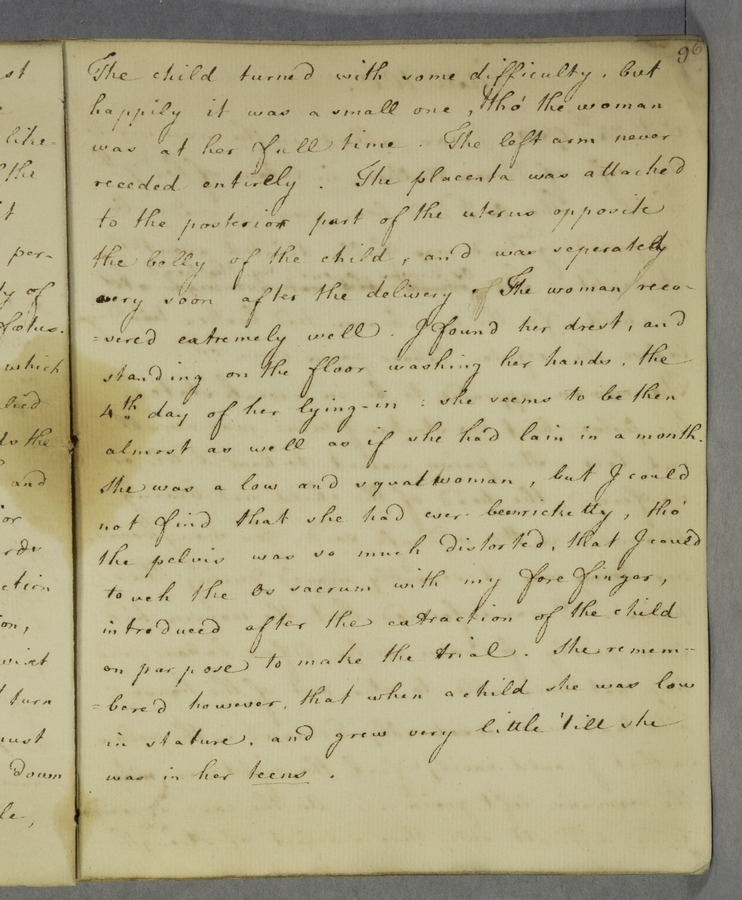 96
The child turned with some difficulty, but
happily it was a small one, tho' the woman
was at her full time. The left arm never
receded entirely. The placenta was attached
to the posterior part of the uterus opposite
the belly of the child, and was seperated
very soon after the delivery The woman reco-
=vered extremely well. I found her drest, and
standing on the floor washing her hands, the
4th day of her lying-in : she seems to be then
almost as well as if she had lain in a month.
She was a low and squat woman, but I could
not find that she had ever been ricketty, tho'
the pelvis was so much distorted, that I could
touch the Os sacrum with my fore finger,
introduced after the extraction of the child
on purpose to make the trial. She remem-
=bered however, that when a child she was low
in stature, and grew very little 'till she
was in her teens.
st
like-
the
per-
ty of
fœtus.
which
and
or
ction
on,
turn
must
down